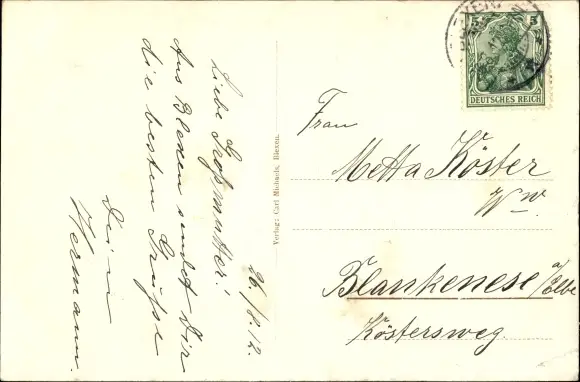 Liebe Großmutter!
Aus Blexen sendet Dir
die besten Grüße
Dein
Hermann.
26/8.12.
Verlag: Carl Michaels, Blexen.
5
DEUTSCHES REICH
Frau
Metta Köster
Ww.
Blankenese a/Elbe
Köstersweg.